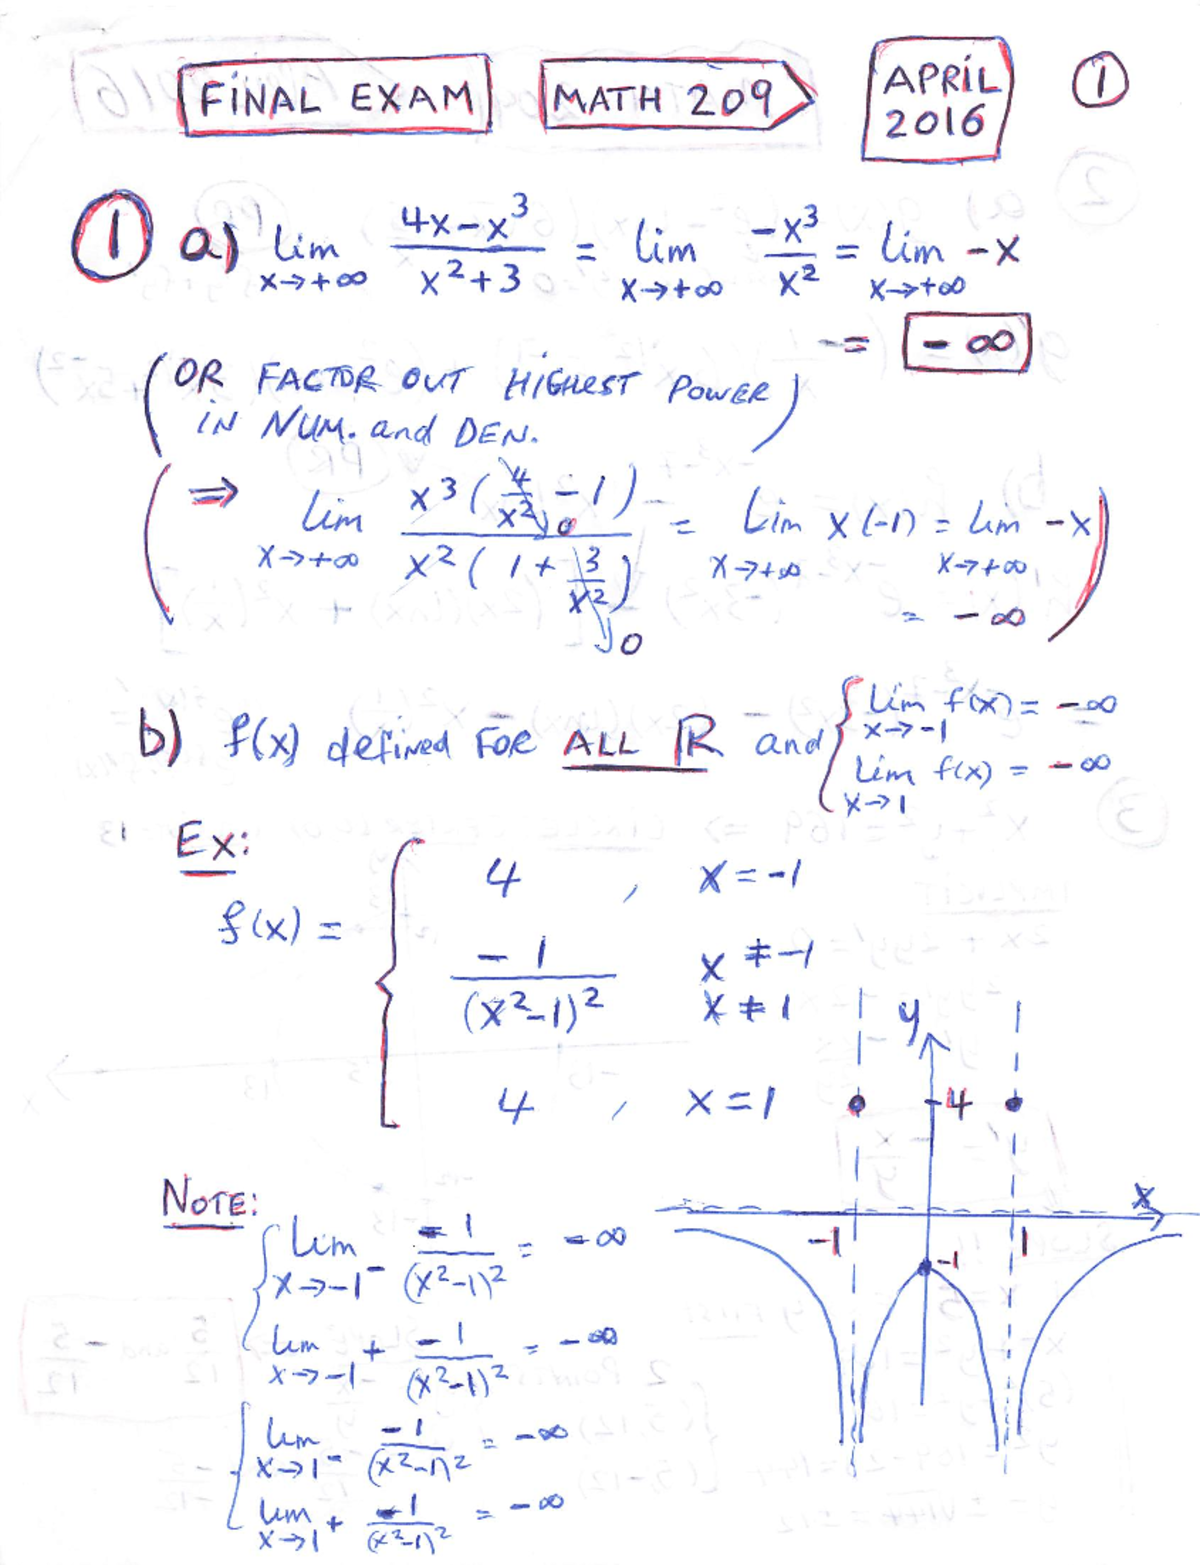 FINAL EXAM MATH 209 APRIL 2016 ①
① a) lim x→+∞ (4x-x³)/(x²+3) = lim x→+∞ -x³/x² = lim x→+∞ -x
= -∞
(OR FACTOR OUT HIGHEST POWER
IN NUM. and DEN.)
(⇒ lim x→+∞ x³(4/x² - 1)/x²(1 + 3/x²) = Lim x→+∞ x(-1) = lim x→+∞ -x
0
0
= -∞)
b) f(x) defined FOR ALL ℝ and { Lim x→-1 f(x) = -∞
Lim x→1 f(x) = -∞
Ex:
f(x) = { 4 , x = -1
-1/(x²-1)² x ≠ -1
x ≠ 1
4 , x = 1
y
4
x
-1 1
-1
NOTE:
{ Lim x→-1⁻ -1/(x²-1)² = -∞
Lim x→-1⁺ -1/(x²-1)² = -∞
{ Lim x→1⁻ -1/(x²-1)² = -∞
Lim x→1⁺ -1/(x²-1)² = -∞